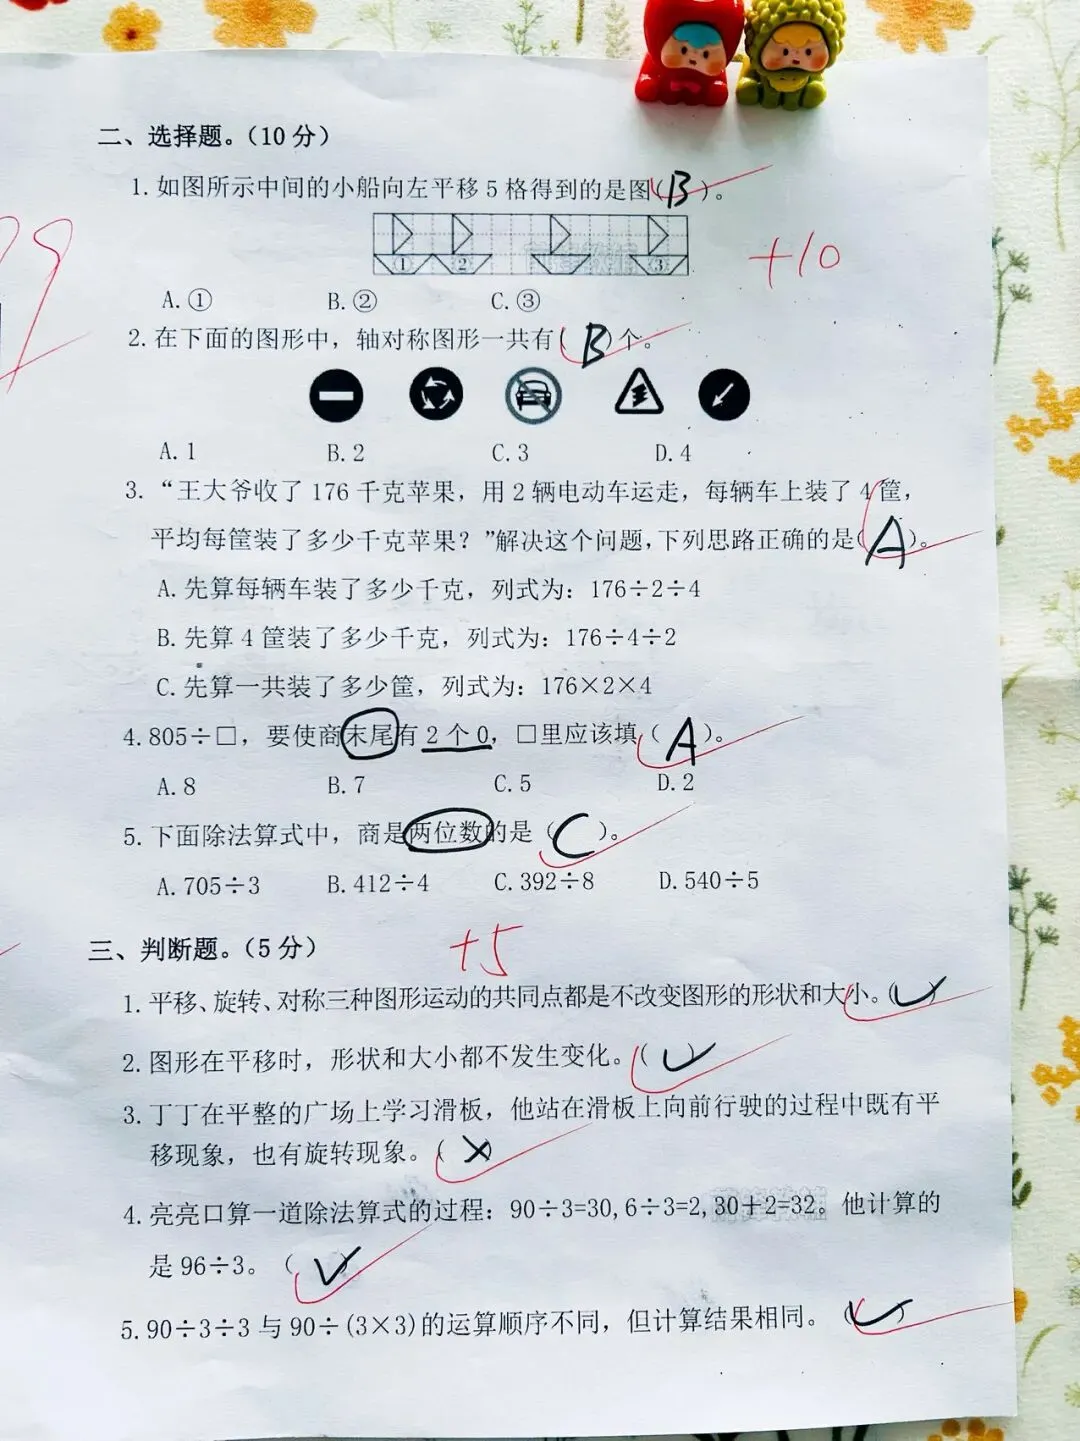 二、选择题。(10分)
1.如图所示中间的小船向左平移5格得到的是图(B)。
① ② ③
+10
A.① B.② C.③
2.在下面的图形中，轴对称图形一共有(B)个。
A.1 B.2 C.3 D.4
3.“王大爷收了176千克苹果，用2辆电动车运走，每辆车上装了4筐，
平均每筐装了多少千克苹果？”解决这个问题，下列思路正确的是(A)。
A.先算每辆车装了多少千克，列式为：176÷2÷4
B.先算4筐装了多少千克，列式为：176÷4÷2
C.先算一共装了多少筐，列式为：176×2×4
4.805÷□，要使商末尾有2个0，□里应该填(A)。
A.8 B.7 C.5 D.2
5.下面除法算式中，商是两位数的是(C)。
A.705÷3 B.412÷4 C.392÷8 D.540÷5
三、判断题。(5分) +5
1.平移、旋转、对称三种图形运动的共同点都是不改变图形的形状和大小。(✓)
2.图形在平移时，形状和大小都不发生变化。(✓)
3.丁丁在平整的广场上学习滑板，他站在滑板上向前行驶的过程中既有平
移现象，也有旋转现象。(×)
4.亮亮口算一道除法算式的过程：90÷3=30,6÷3=2,30+2=32。他计算的
是96÷3。(✓)
5.90÷3÷3与90÷(3×3)的运算顺序不同，但计算结果相同。(✓)